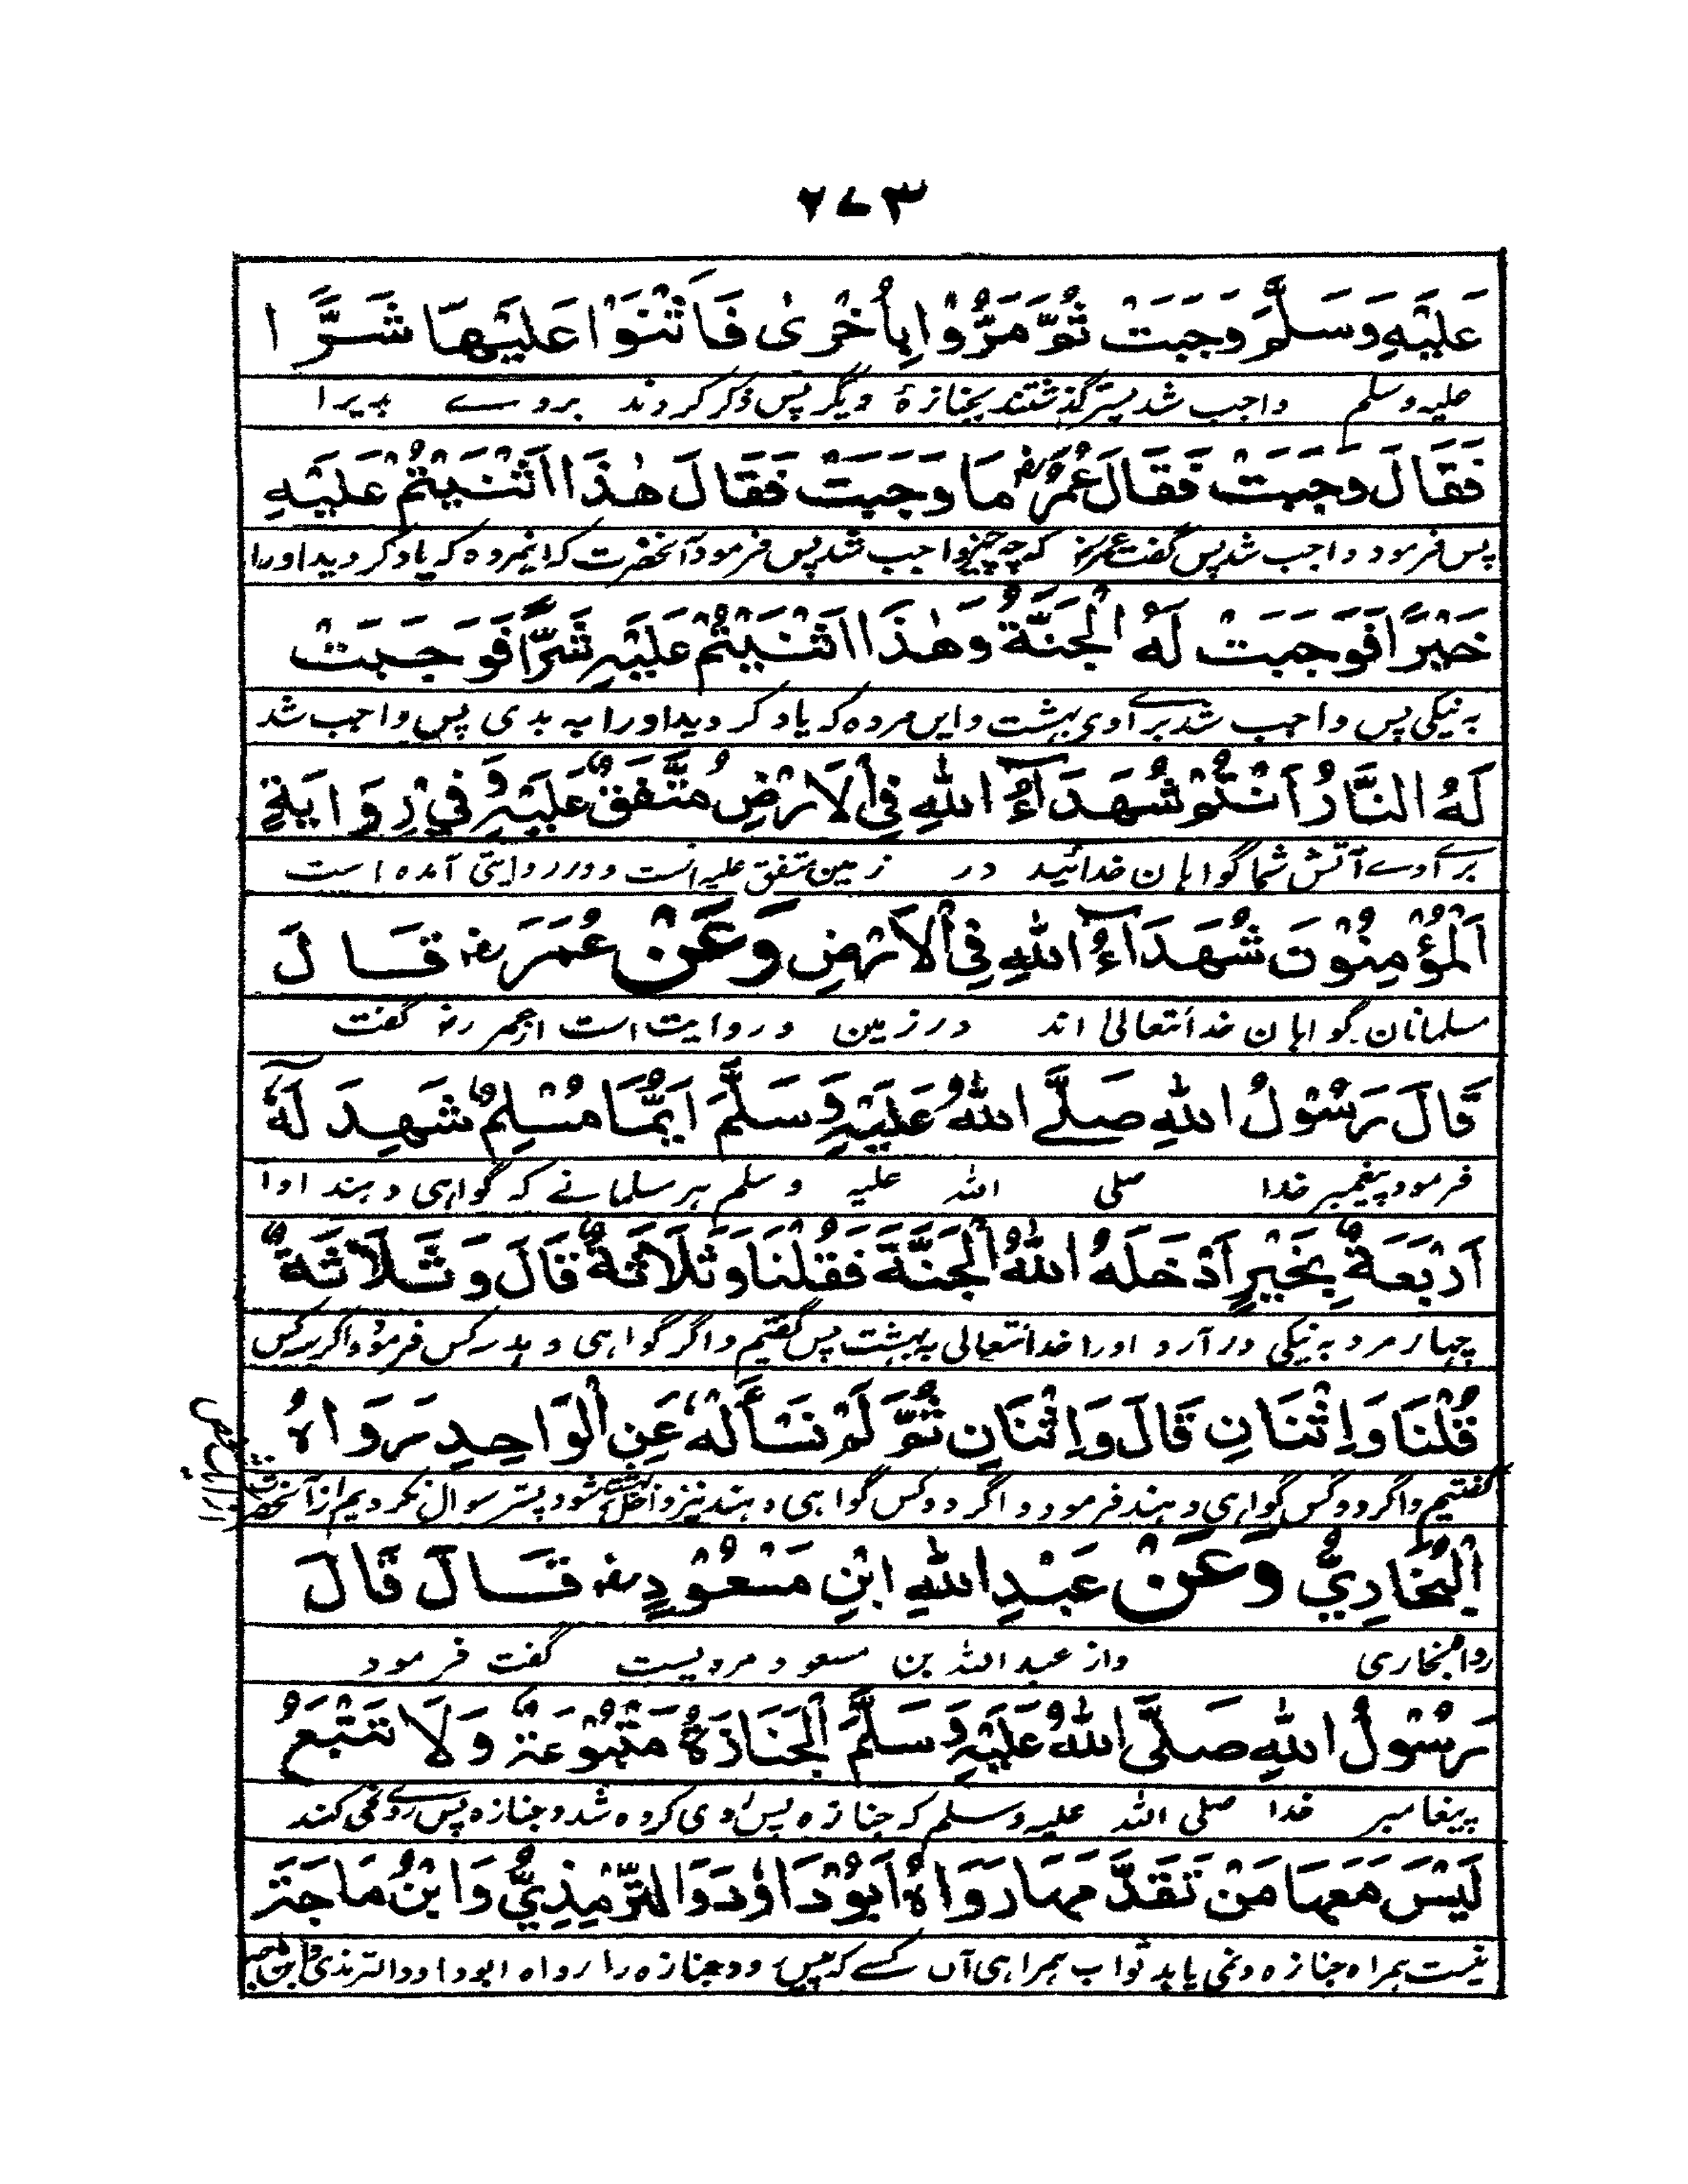 ٢٧٣
عَلَيْهِ وَسَلَّمَ وَجَبَتْ ثُمَّ مَرُّوْا بِأُخْرٰى فَأَثْنَوْا عَلَيْهَا شَرًّا
علیه وسلم واجب شد پستر گذشتند بجنازهٔ دیگر پس ذکر کردند بروے بدیرا
فَقَالَ وَجَبَتْ فَقَالَ عُمَرُ رض مَا وَجَبَتْ فَقَالَ هٰذَا اَثْنَيْتُمْ عَلَيْهِ
پس فرمود واجب شد پس گفت عمر رض که چه چیز واجب شد پس فرمود آنحضرت که اینمرده که یاد کردید اورا
خَيْرًا فَوَجَبَتْ لَهُ الْجَنَّةُ وَهٰذَا اَثْنَيْتُمْ عَلَيْهِ شَرًّا فَوَجَبَتْ
به نیکی پس واجب شد براے اوی بهشت و این مرده که یاد کردید اورا به بدی پس واجب شد
لَهُ النَّارُ اَنْتُمْ شُهَدَآءُ اللهِ فِي الْاَرْضِ مُتَّفَقٌ عَلَيْهِ وَفِيْ رِوَايَةٍ
براے اوے آتش شما گواهان خدائید در زمین متفق علیه است و در روایتی آمده است
اَلْمُؤْمِنُوْنَ شُهَدَآءُ اللهِ فِي الْاَرْضِ وَعَنْ عُمَرَ رض قَالَ
مسلمانان گواهان خدا تعالیٰ اند در زمین و روایت است از عمر رض گفت
قَالَ رَسُوْلُ اللهِ صَلَّے اللهُ عَلَيْهِ وَسَلَّمَ اَيُّمَا مُسْلِمٌ شَهِدَ لَهٗ
فرمود پیغمبر خدا صلی الله علیه وسلم هر مسلمانے که گواهی دهند اورا
اَرْبَعَةٌ بِخَيْرٍ اَدْخَلَهُ اللهُ الْجَنَّةَ فَقُلْنَا وَثَلَاثَةٌ قَالَ وَثَلَاثَةٌ
چهار مرد به نیکی در آرد اورا خدا تعالی به بهشت پس گفتیم و اگر گواهی دهد سه کس فرمود و اگر سه کس
قُلْنَا وَاِثْنَانِ قَالَ وَاِثْنَانِ ثُمَّ لَمْ نَسْأَلْهُ عَنِ الْوَاحِدِ رَوَاهُ
گفتیم و اگر دو کس گواهی دهند فرمود و اگر دو کس گواهی دهند نیز داخل بهشت شود پستر سوال نکردیم از آنحضرت
الْبُخَارِيُّ وَعَنْ عَبْدِ اللهِ ابْنِ مَسْعُوْدٍ رض قَالَ قَالَ
رواه بخاری و از عبد الله بن مسعود مرویست گفت فرمود
رَسُوْلُ اللهِ صَلَّى اللهُ عَلَيْهِ وَسَلَّمَ الْجَنَازَةُ مَتْبُوْعَةٌ وَلَا تَتْبَعُ
پیغامبر خدا صلی الله علیه وسلم که جنازه پس روی کرده شد و جنازه پس روے نمی کند
لَيْسَ مَعَهَا مَنْ تَقَدَّمَهَا رَوَاهُ اَبُوْ دَاوٗدَ وَالتِّرْمِذِيُّ وَابْنُ مَاجَةَ
نیست همراه جنازه و نمی یابد ثواب همراهی آن کسے که پیش رود جنازه را رواه ابو داود والترمذی و ابن ماجه